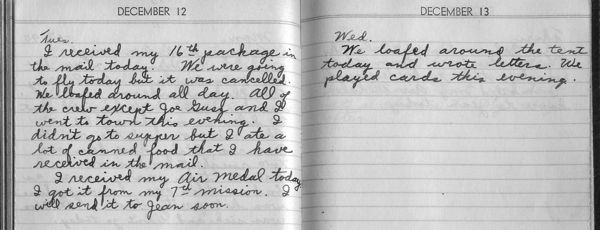 DECEMBER 12
Tues.
I received my 16th package in
the mail today. We were going
to fly today but it was cancelled.
We loafed around all day. All of
the crew except Joe Guss and I
went to town this evening. I
didn't go to supper but I ate a
lot of canned food that I have
received in the mail.
I received my Air Medal today
I got it from my 7th mission. I
will send it to Jean soon.
DECEMBER 13
Wed.
We loafed around the tent
today and wrote letters. We
played cards this evening.